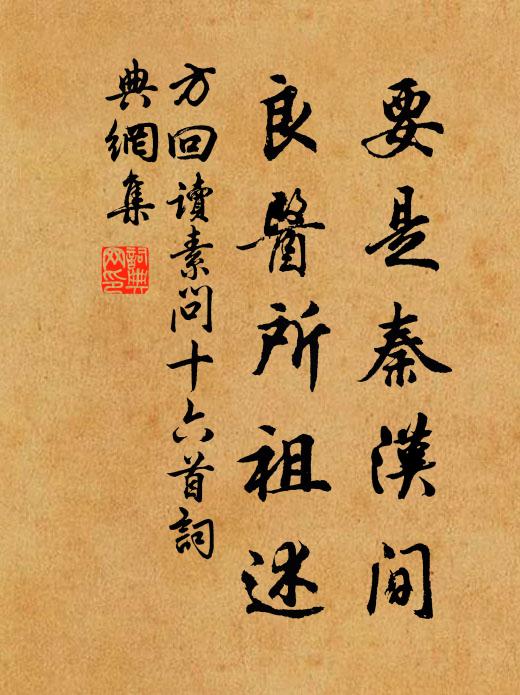 要是秦漢間
良醫所祖述
方回讀素問十六首詞
典網集
詞典
网印